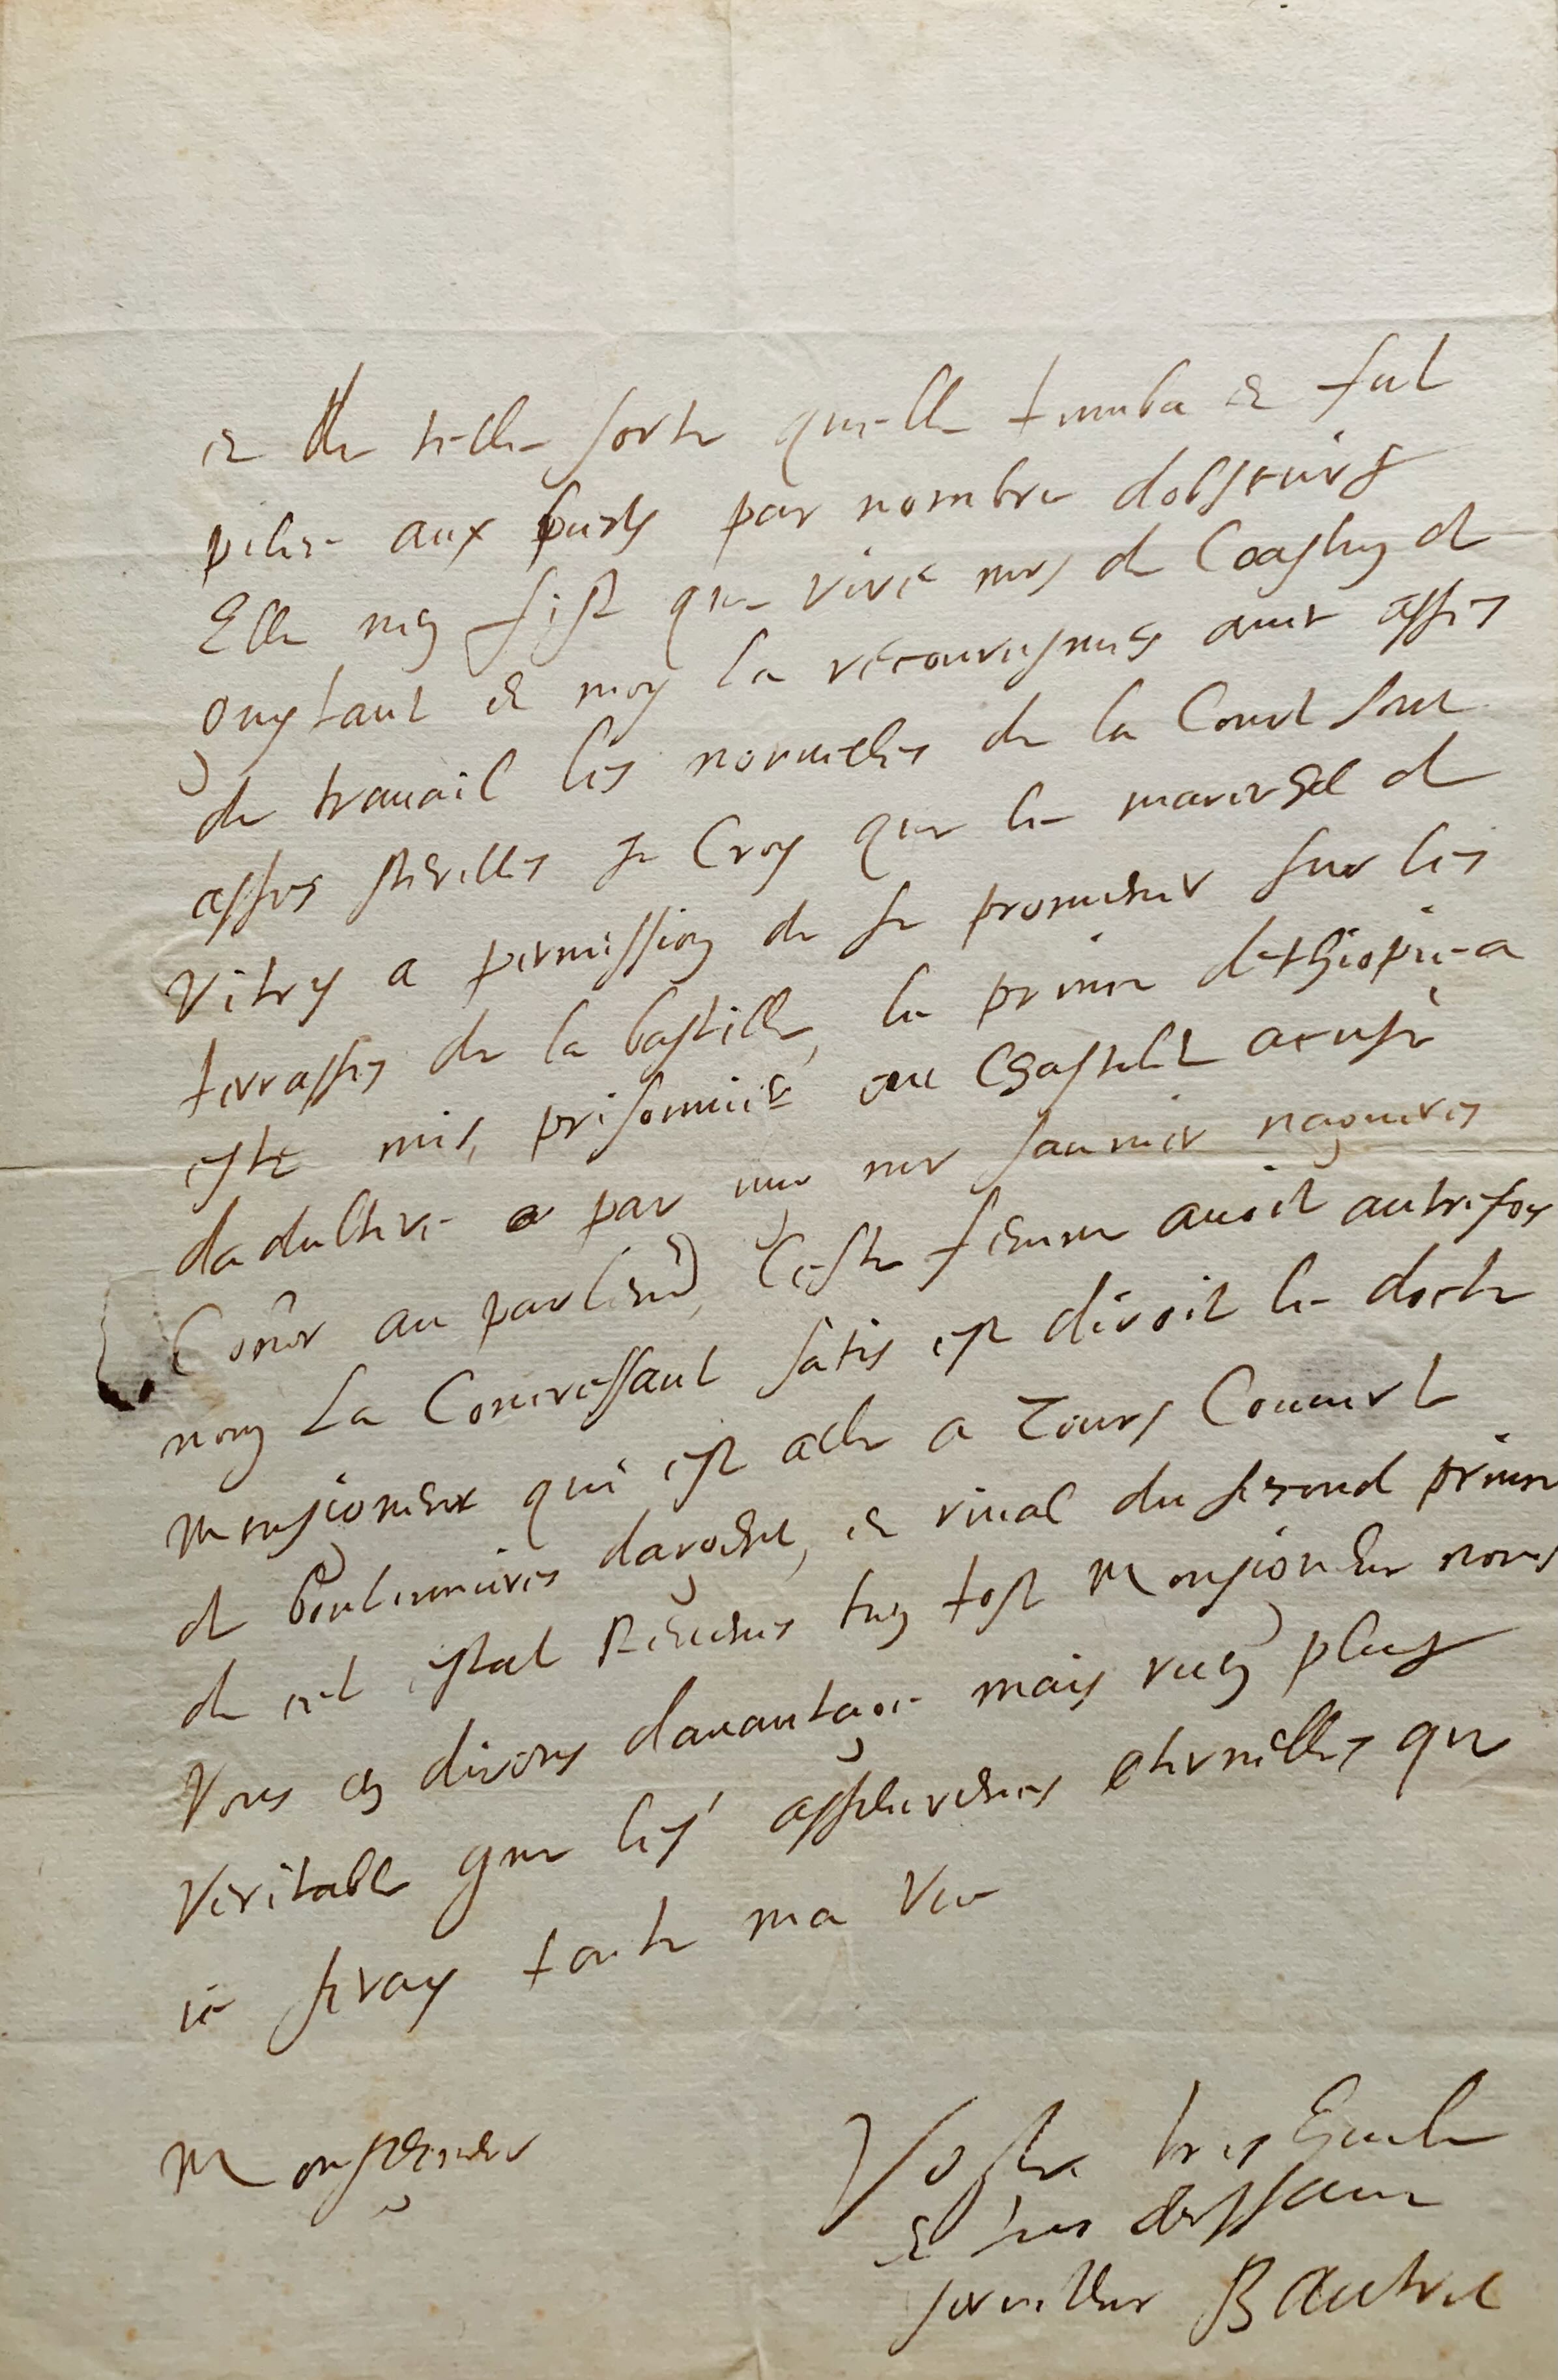 et de telle sorte quelle tumba et fut
pilée aux pieds par nombre dobscurs
Elle ney fist que rire mrs de Coaslin et
et moy la recouvrismes avec asses
de travail les nouvelles de la Court sont
asses steriles Je Croy que le mareschal de
Vitry a permission de se promener sur les
terrasses de la bastille, le prince dethiopie a
esté mis, prisonnier au Chastelet accusé
dadultere par un mr saunier nagueres
Coner au parlemt, Ceste femme avoit autrefois
nom La Concressaut satis est diroit le docte
monseigneur qui est alle a Tours Couvert
de dargent, et rival du second prince
de cet estat Revenes tost Monseigneur nous
vous en dirons davantage mais rien plus
veritable que les asseurences eternelles que
je seray toute ma vie
Monseigneur
Vostre tres humble
et tres obeissant
serviteur Bautru